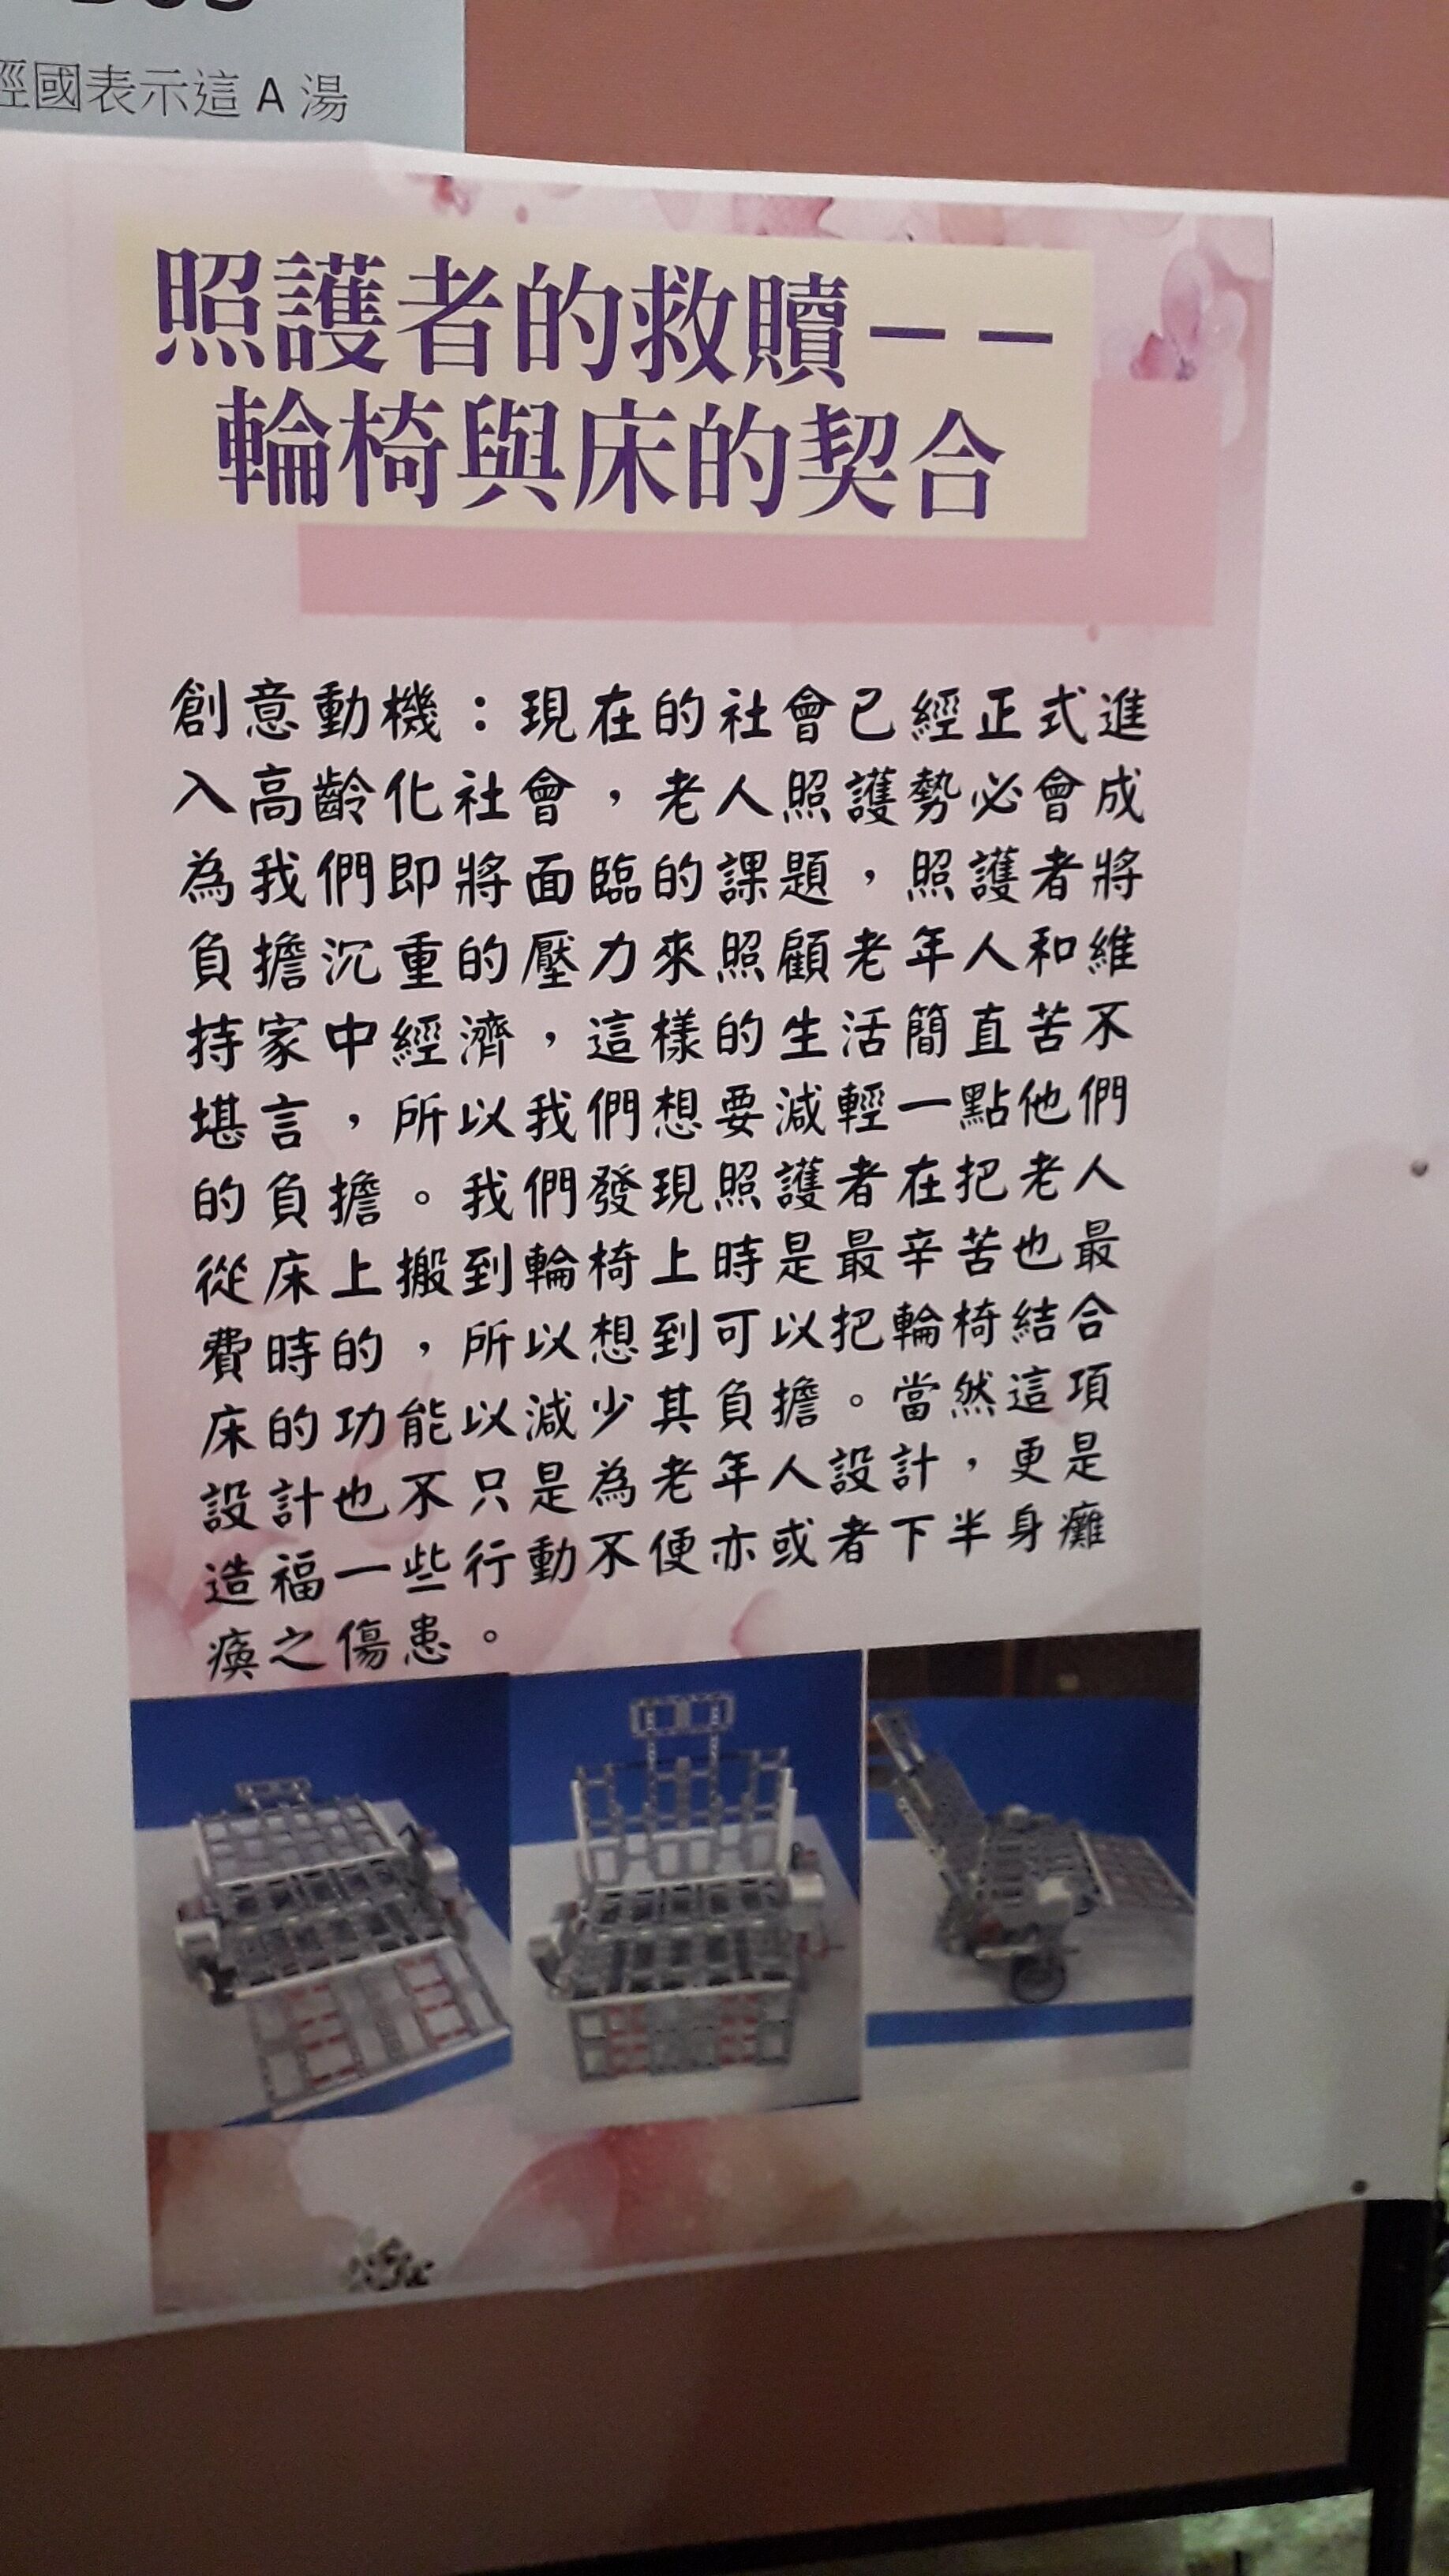 經國表示這 A 湯
照護者的救贖——
輪椅與床的契合
創意動機：現在的社會已經正式進
入高齡化社會，老人照護勢必會成
為我們即將面臨的課題，照護者將
負擔沉重的壓力來照顧老年人和維
持家中經濟，這樣的生活簡直苦不
堪言，所以我們想要減輕一點他們
的負擔。我們發現照護者在把老人
從床上搬到輪椅上時是最辛苦也最
費時的，所以想到可以把輪椅結合
床的功能以減少其負擔。當然這項
設計也不只是為老年人設計，更是
造福一些行動不便亦或者下半身癱
瘓之傷患。